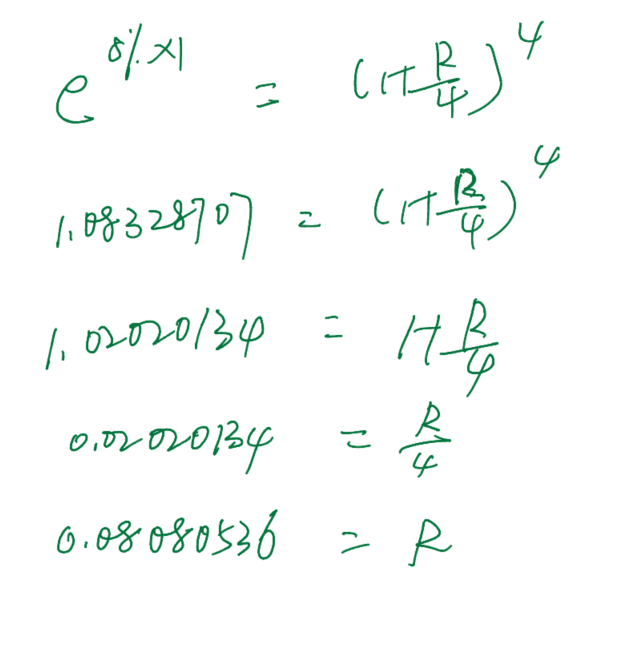 e^{8%×1} = (1+R/4)^4
1.08328707 = (1+R/4)^4
1.02020134 = 1+R/4
0.02020134 = R/4
0.08080536 = R